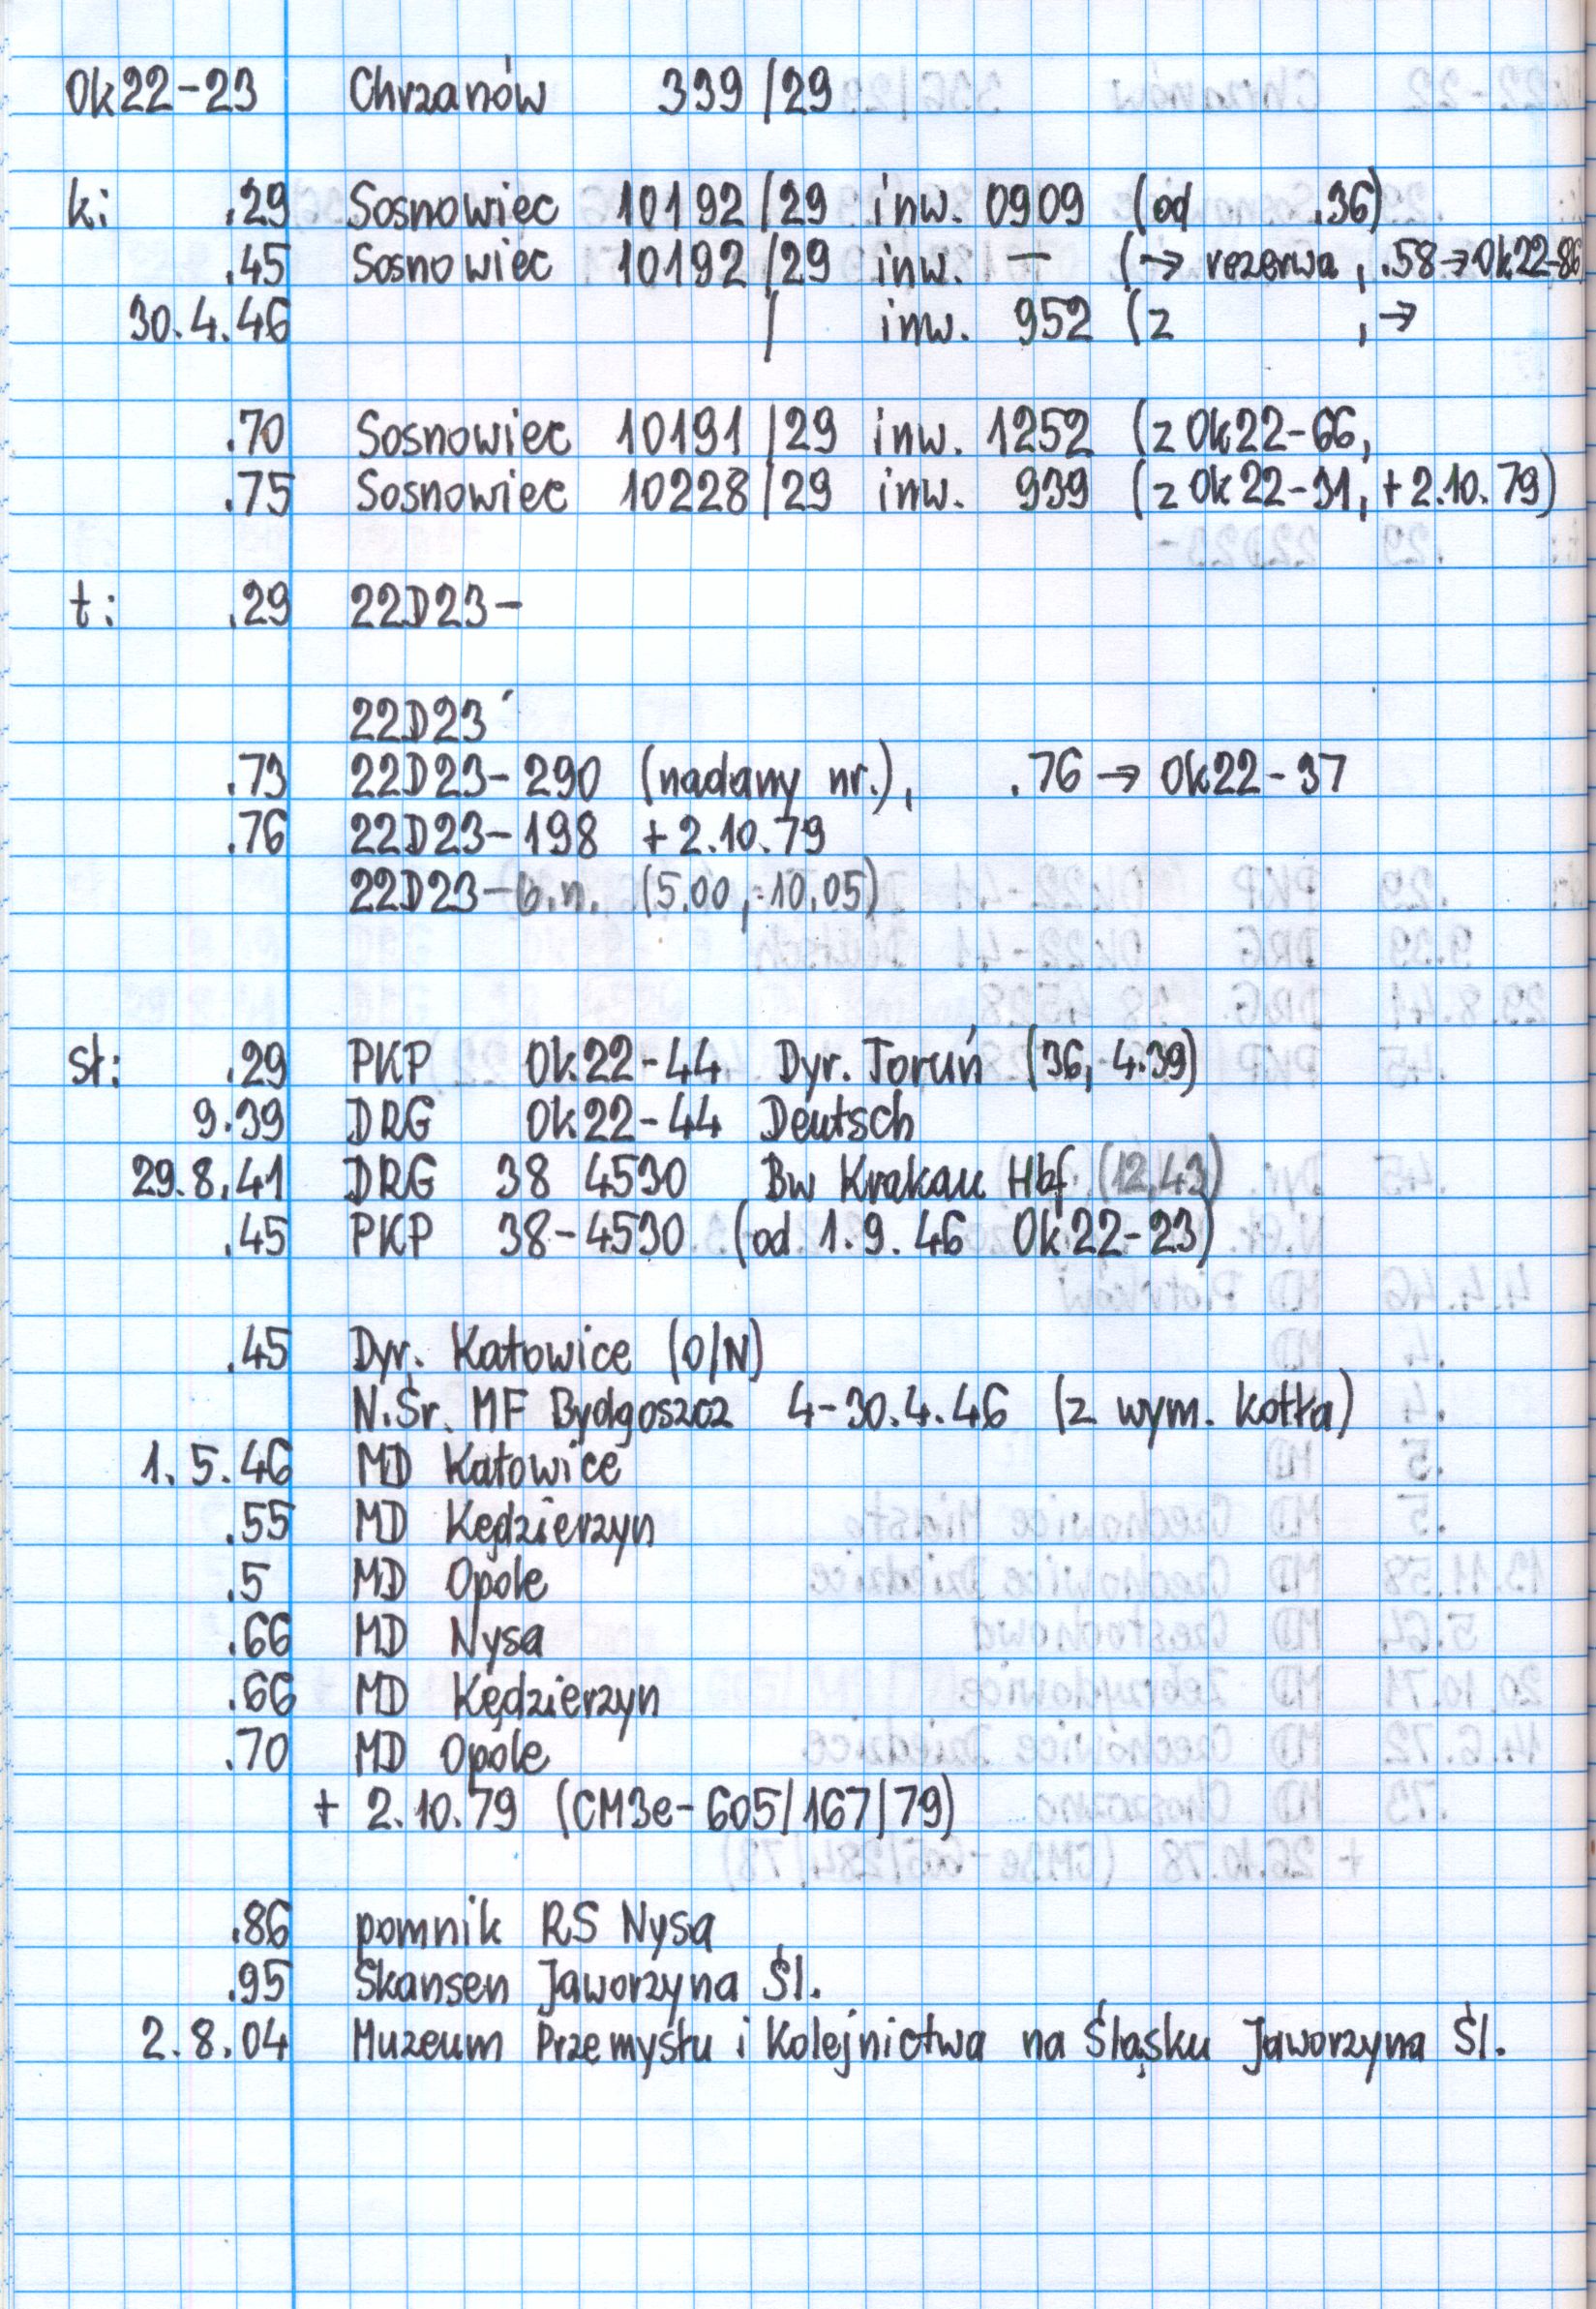 Ok22-23 Chrzanów 339/29
k: .29 Sosnowiec 10192/29 inw. 0909 (od .36)
.45 Sosnowiec 10192/29 inw. — (→ rezerwa, .58→Ok22-86
30.4.46 / inw. 952 (z , →
.70 Sosnowiec 10191/29 inw. 1252 (z Ok22-66,
.75 Sosnowiec 10228/29 inw. 939 (z Ok22-31, +2.10.79)
t: .29 22D23-
22D23
.73 22D23-290 (nadany nr.), .76 → Ok22-37
.76 22D23-198 +2.10.79
22D23-b.n. (5.00,-10.05)
sł: .29 PKP Ok22-44 Dyr. Toruń (36,-4.39)
9.39 DRG Ok22-44 Deutsch
29.8.41 DRG 38 4530 Bw Krakau Hbf (12.43)
.45 PKP 38-4530 (od 1.9.46 Ok22-23)
.45 Dyr. Katowice (O/N)
N.Śr. MF Bydgoszcz 4-30.4.46 (z wym. kotła)
1.5.46 MD Katowice
.55 MD Kędzierzyn
.5 MD Opole
.66 MD Nysa
.66 MD Kędzierzyn
.70 MD Opole
+ 2.10.79 (CM3e-605/167/79)
.86 pomnik RS Nysa
.95 Skansen Jaworzyna Śl.
2.8.04 Muzeum Przemysłu i Kolejnictwa na Śląsku Jaworzyna Śl.